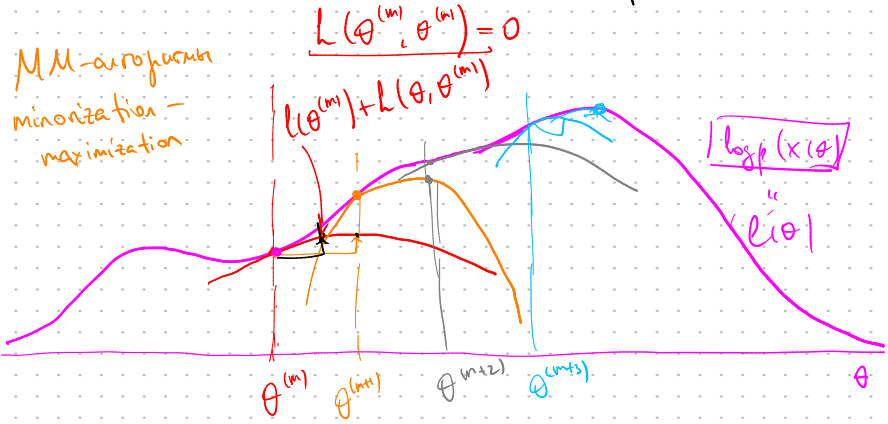 h(θ⁽ᵐ⁾, θ⁽ᵐ⁾) = 0
MM-алгоритмы
minorization -
maximization
l(θ⁽ᵐ⁾) + h(θ, θ⁽ᵐ⁾)
log p(X|θ)
"
l(θ)
θ⁽ᵐ⁾
θ⁽ᵐ⁺¹⁾
θ⁽ᵐ⁺²⁾
θ⁽ᵐ⁺³⁾
θ